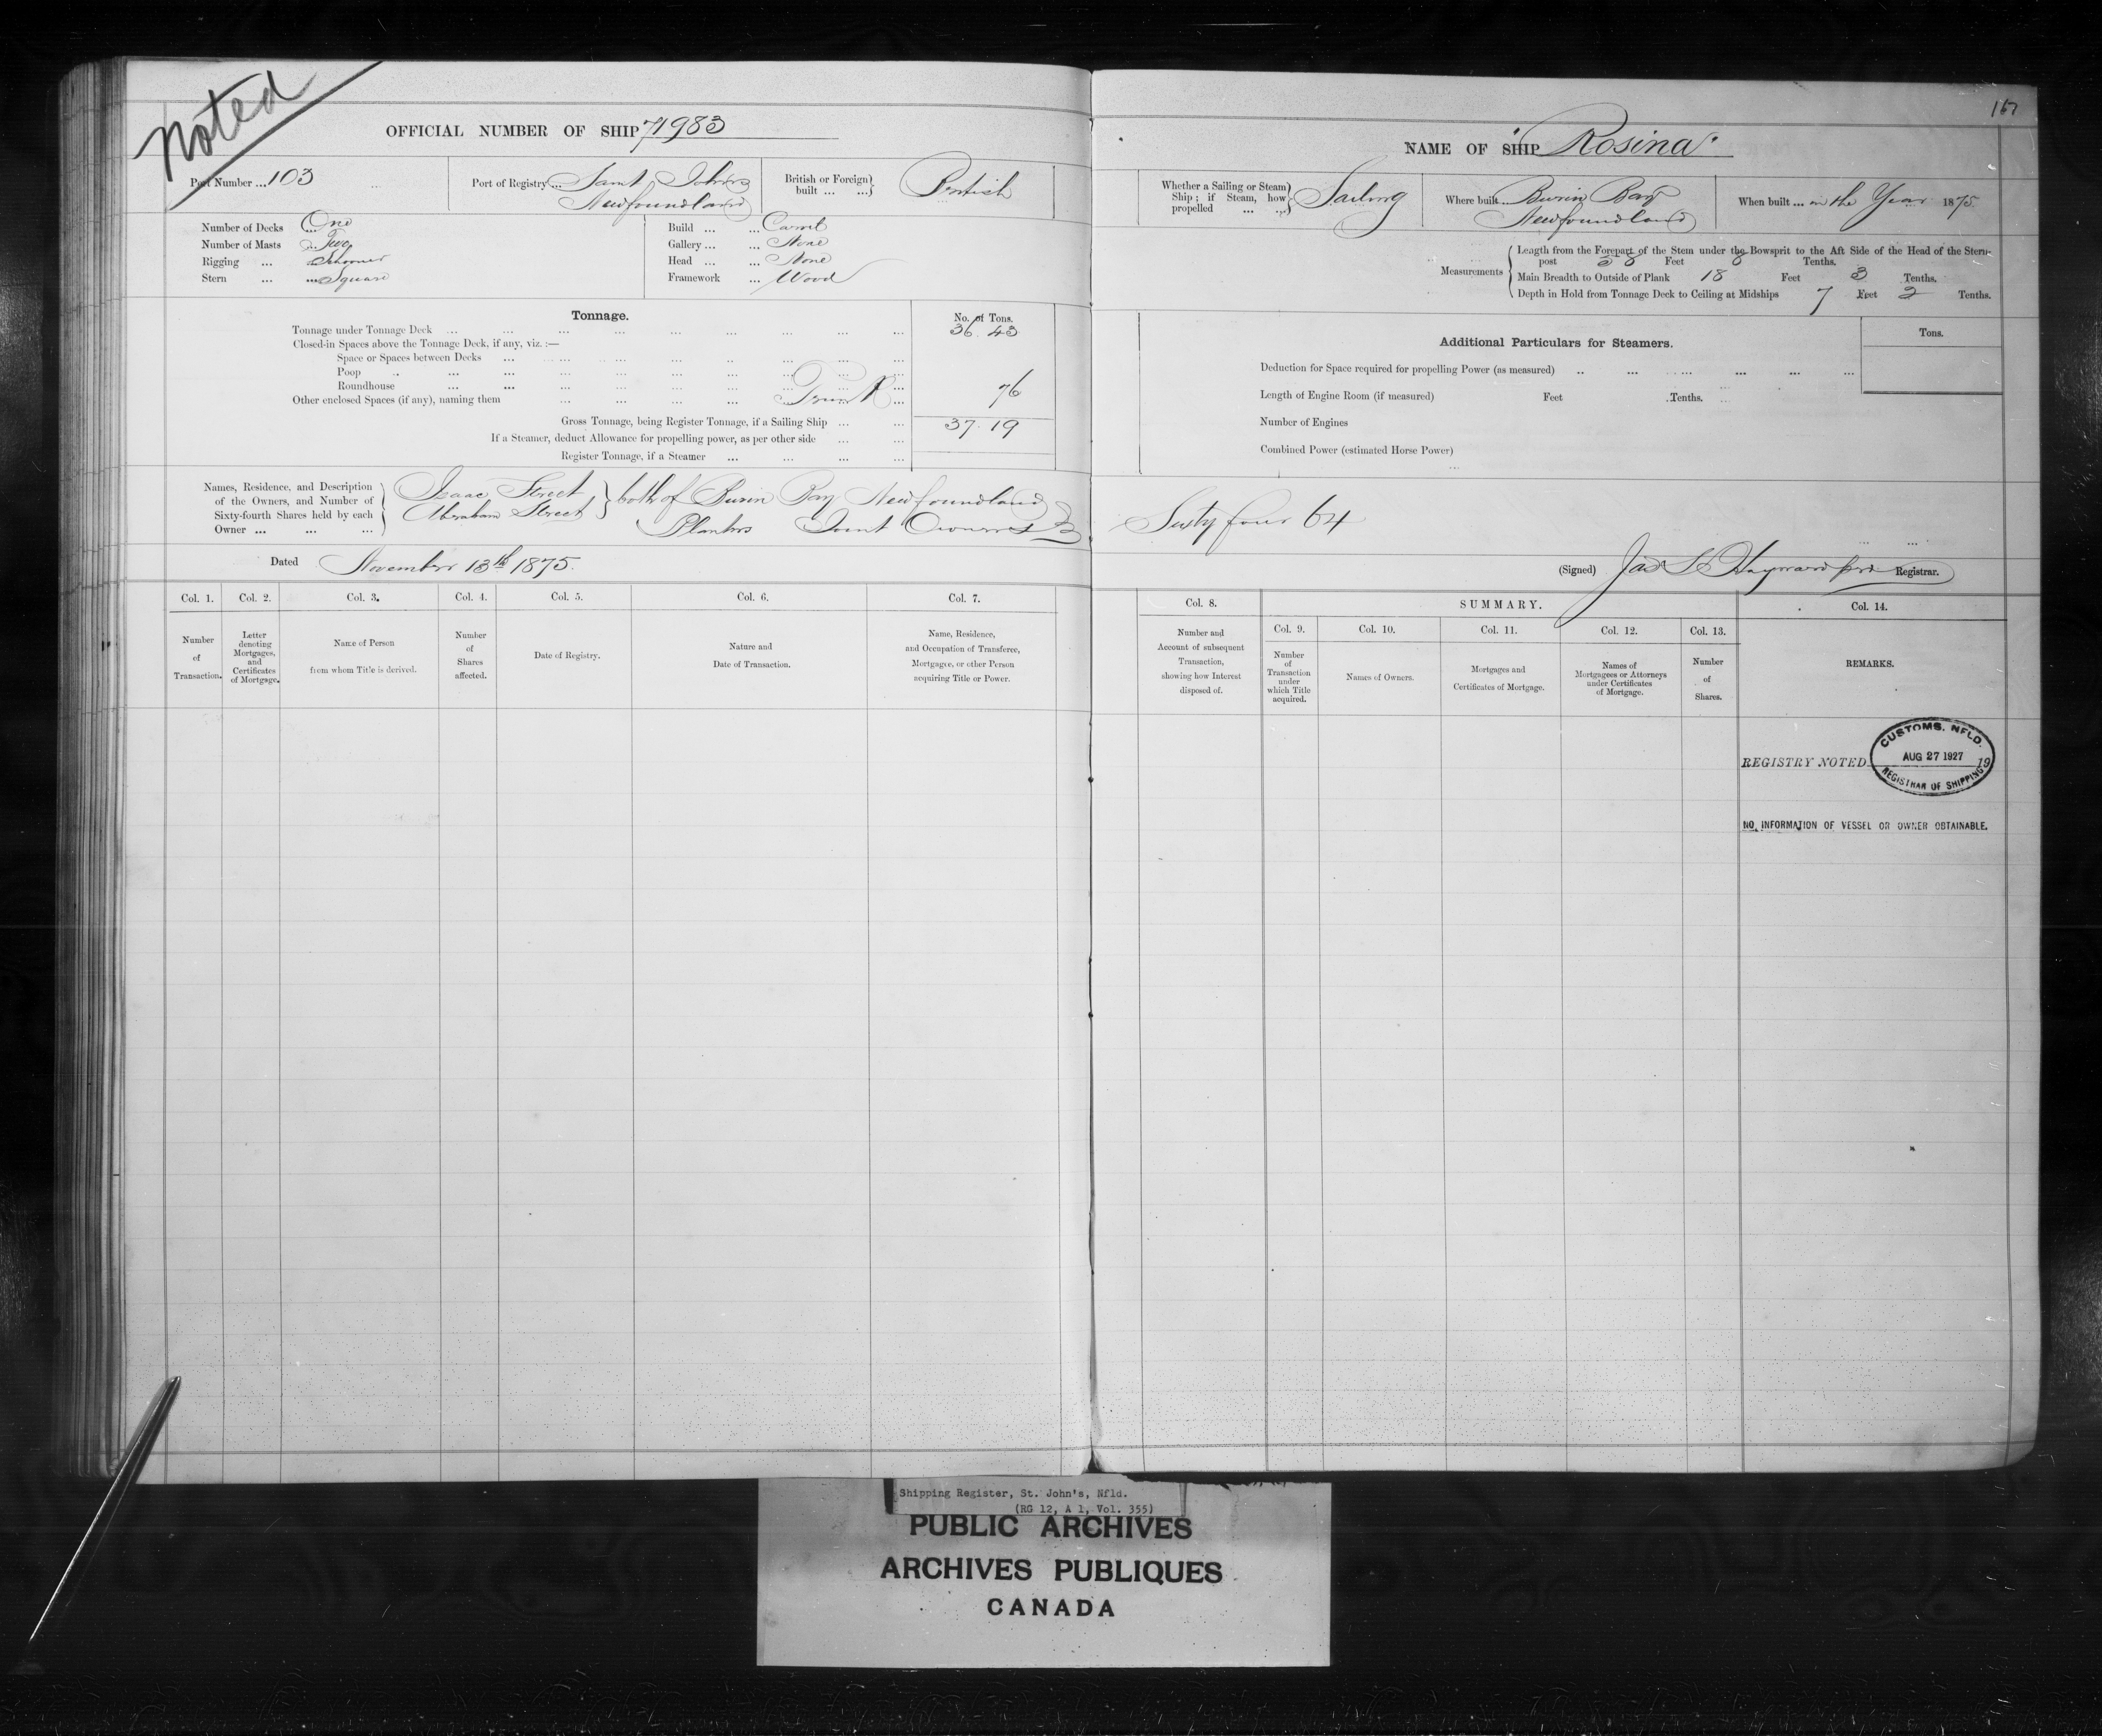 Noted
OFFICIAL NUMBER OF SHIP 71983
Port Number ... 103
Port of Registry ... Saint Johns
Newfoundland
British or Foreign built ... ... British
Number of Decks ... One
Number of Masts ... Two
Rigging ... Schooner
Stern ... ... Square
Build ... ... Carvel
Gallery ... ... None
Head ... ... None
Framework ... Wood
Tonnage.
No. of Tons.
Tonnage under Tonnage Deck ... 36.43
Closed-in Spaces above the Tonnage Deck, if any, viz. :—
Space or Spaces between Decks ...
Poop ...
Roundhouse ...
Other enclosed Spaces (if any), naming them ... Trunk ... 76
Gross Tonnage, being Register Tonnage, if a Sailing Ship ... 37.19
If a Steamer, deduct Allowance for propelling power, as per other side ...
Register Tonnage, if a Steamer ...
Names, Residence, and Description
of the Owners, and Number of
Sixty-fourth Shares held by each
Owner ... ... ...
Isaac Street
Abraham Street
both of Burin Bay Newfoundland
Planters Joint Owners
Dated November 13th 1875.
Col. 1. Col. 2. Col. 3. Col. 4. Col. 5. Col. 6. Col. 7.
Number of Transaction.
Letter denoting Mortgages, and Certificates of Mortgage.
Name of Person from whom Title is derived.
Number of Shares affected.
Date of Registry.
Nature and Date of Transaction.
Name, Residence, and Occupation of Transferee, Mortgagee, or other Person acquiring Title or Power.
167
NAME OF SHIP "Rosina"
Whether a Sailing or Steam Ship ; if Steam, how propelled ... ... Sailing
Where built ... Burin Bay
Newfoundland
When built ... in the Year 1875.
Measurements
Length from the Forepart of the Stem under the Bowsprit to the Aft Side of the Head of the Stern-
post 58 Feet 8 Tenths.
Main Breadth to Outside of Plank 18 Feet 3 Tenths.
Depth in Hold from Tonnage Deck to Ceiling at Midships 7 Feet 2 Tenths.
Additional Particulars for Steamers.
Tons.
Deduction for Space required for propelling Power (as measured) ...
Length of Engine Room (if measured) Feet Tenths.
Number of Engines
Combined Power (estimated Horse Power)
Sixty four 64
(Signed) Jas Hayward Registrar.
Col. 8.
SUMMARY.
Col. 14.
Col. 9. Col. 10. Col. 11. Col. 12. Col. 13.
Number and Account of subsequent Transaction, showing how Interest disposed of.
Number of Transaction under which Title acquired.
Names of Owners.
Mortgages and Certificates of Mortgage.
Names of Mortgagees or Attorneys under Certificates of Mortgage.
Number of Shares.
REMARKS.
REGISTRY NOTED 19
CUSTOMS. NFLD.
AUG 27 1927
REGISTRAR OF SHIPPING
NO INFORMATION OF VESSEL OR OWNER OBTAINABLE.
Shipping Register, St. John's, Nfld.
(RG 12, A 1, Vol. 355)
PUBLIC ARCHIVES
ARCHIVES PUBLIQUES
CANADA